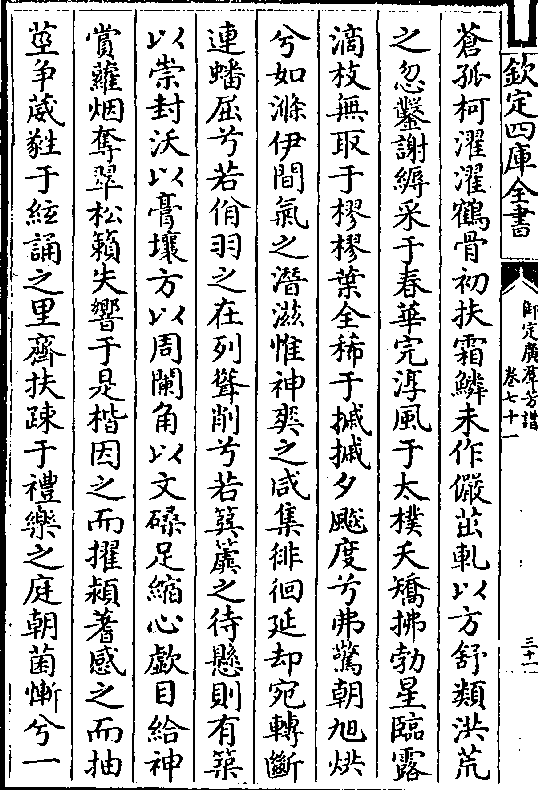 欽定四庫全書
御定廣羣芳譜
卷七十一
三十一
蒼孤柯濯濯鶴骨初扶霜鱗未作儼茁軋以方舒類洪荒
之忽鑿謝縟采于春華完淳風于太樸夭矯拂勃星臨露
滴枝無取于樛樛葉全稀于摵摵夕飇度兮弗驚朝旭烘
兮如滌伊間氣之潛滋惟神爽之咸集徘徊延却宛轉斷
連蟠屈兮若佾羽之在列聳削兮若簨簴之待懸則有築
以崇封沃以膏壤方以周闌角以文磉足縮心歔目給神
賞蘿烟奪翠松籟失響于是楷因之而擢潁蓍感之而抽
莖爭葳蕤于絃誦之里齊扶踈于禮樂之庭朝菌慚兮一